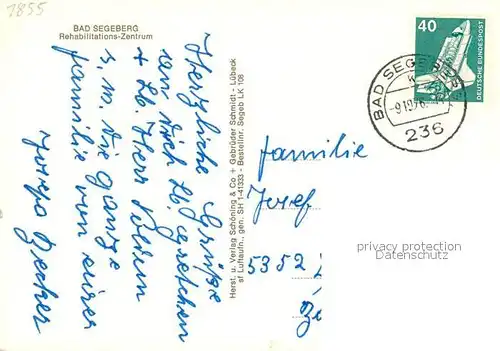 1855
BAD SEGEBERG
Rehabilitations-Zentrum
Herzliche Grüße
an Dich Lb. Gretchen
+ Lb. Herr
u. die ganze
Familie von eurer
Becker
Herst. u. Verlag Schöning & Co + Gebrüder Schmidt - Lübeck
sf Luftaufn., gen. SH 1-41333 - Bestellnr. Segeb LK 108
40
DEUTSCHE BUNDESPOST
BAD SEGEBERG
236
Familie
Josef
5352
privacy protection
Datenschutz